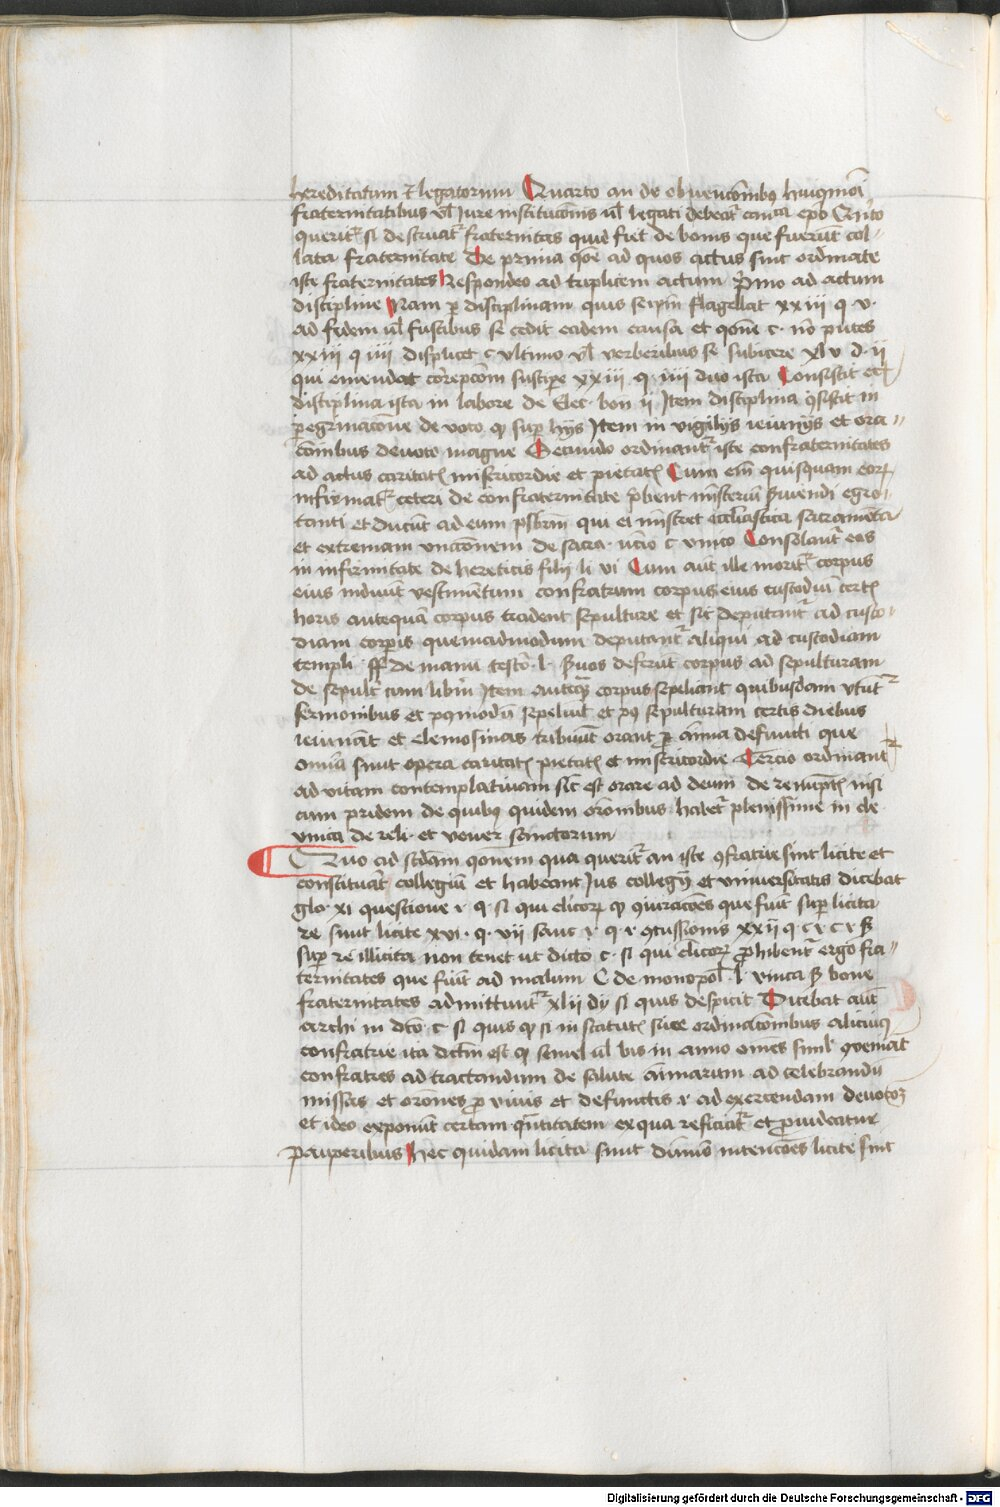 hereditatum et legatorum Quarto an de obuencōnibꝯ huiꝯmōi
fraternitatibus vl̄ Iure institucōnis ul̄ legati debeat͛ cānica ep̄o
querit͛ si destruat͛ fraternitas quid fiet de bonis que fuerūt col-
lata fraternitate De prima qōe ad quos actus sint ordinate
iste fraternitates Respondeo ad triplicem actum Primo ad actum
discipline Nam ꝑ disciplinam quis seipm̄ flagellat xxiii q v.
ad fidem ul̄ fustibus se cedit eadem causa et qōne c. nō putes
xxiii q iiii displicet c vltimo vl̄ verberibus se subicere xlv d. ii
qui emendat cōrepcōm suscipe xxiii. q. iiii duo ista Consistit et̄
disciplina ista in labore de Elec. bon ii Item disciplina ꝯsistit in
pegrinacōne de voto qꝫ sup hijs Item in vigilijs ieiunijs et ora-
cōnibus deuote magne Secundo ordinant͛ iste confraternitates
ad actus caritatꝭ misericordie et pietatꝭ Cum em̄ quisquam eoꝝ
infirmat͛ ceteri de confraternitate p̄bent ministeriū suendi egro-
tanti et ducūt ad eum p̄sbrm̄ qui ei mīstret ecc̄lastica sacramēta
et extremam vnccōnem de sacra. vn̄cio c vnico Consolant͛ eos
in infirmitate de hereticis filij li vi Cum aūt ille morit͛ corpus
eius induūt vestimentum confratrum corpus eius custodiūt certꝭ
horis antequā corpus tradent sepulture et sic deputant͛ ad custo-
diam corpis quemadmodum deputant͛ aliqui ad custodiam
templi ff de manu testō. l. suos deferūt corpus ad sepulturam
de sepult͛ cum libm̄ Item anteqꝫ corpus sepeliant quibusdam vtūt͛
sermonibus et pꝯmodū sepeliūt et pꝯ sepulturam certis diebus
ieiunāt et elemosinas tribuūt orant ꝓ anima defuncti que
omīa sunt opera caritatꝭ pietatꝭ et misericordie Tercio ordinant͛
ad vitam contemplatiuam sic est orare ad deum de renūptꝭ nisi
cum pridem de quibꝯ quidem orōnibus habet͛ plenissime in cle
vnica de reli. et vener sanctorum
Quo ad scd̄am qōnem qua querit͛ an iste ꝯfratrie sint licite et
constituāt collegiū et habeant Jus collegij et vniuersitatis dicebat
glo. xi questione i. q. si qui clicoꝝ qꝫ ꝯiuracōes que fiūt sup licita
re sunt licite xvi. q. vii sane i. q. i. ꝯcussionis xxii q c i c i sꝫ
sup re illicita non tenet ut dicto c. si qui clicoꝝ ꝓhibent͛ ergo fra-
ternitates que fiūt ad malum C de monopol. l. vnica sꝫ bone
fraternitates admittunt͛ xlii di si quis despicit Dicebat aūt
archi in dc̄o c si quis qꝫ si in statutꝭ siue ordinacōnibus alicuiꝯ
confratrie ita dc̄m est qꝫ semel ul̄ bis in anno om̄es siml̄ ꝯueniāt
confratres ad tractandum de salute animarum ad celebrandū
missas et orōnes ꝓ viuis et defunctis i. ad exercendam deuotoꝫ
et ideo exponūt certam q̄ntitatem ex qua reficiat͛ et ꝓuideatur
pauperibus Hec quidam licita sunt dūmō intencōes licite sint
Digitalisierung gefördert durch die Deutsche Forschungsgemeinschaft - DFG